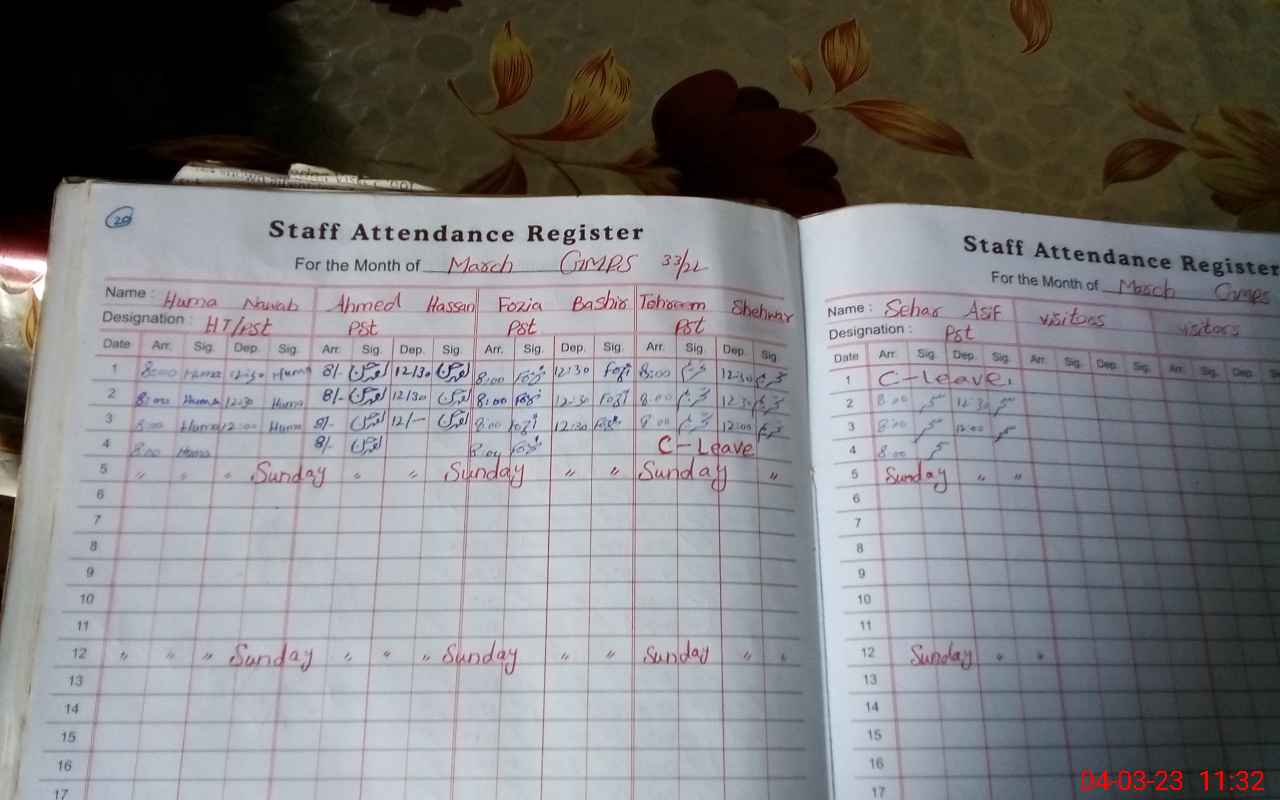 20
Staff Attendance Register
For the Month of March GMPS 33/2L
Name : Huma Nawab Ahmed Hassan Fozia Bashir Tahreem Shehwar
Designation : HT/Pst Pst Pst Pst
Date Arr. Sig. Dep. Sig. Arr. Sig. Dep. Sig. Arr. Sig. Dep. Sig. Arr. Sig. Dep. Sig.
1 8:00 Huma 12:30 Huma 8/- 12/30 8:00 12:30 8:00 12:30
2 8:00 Huma 12:30 Huma 8/- 12/30 8:00 12:30 8:00 12:30
3 8:00 Huma 12:00 Huma 8/- 12/- 8:00 12:30 8:00 12:00
4 8:00 Huma 8/- C-Leave
5 " " " Sunday " " Sunday " " Sunday "
6
7
8
9
10
11
12 " " " Sunday " " " Sunday " " Sunday " "
13
14
15
16
17
Staff Attendance Register
For the Month of March GMPS
Name : Sehar Asif visitors visitors
Designation : Pst
Date Arr. Sig. Dep. Sig. Arr. Sig. Dep. Sig. Arr. Sig. Dep.
1 C-Leave.
2 8:00 12:30
3 8:00 12:00
4 8:00
5 Sunday " "
6
7
8
9
10
11
12 Sunday " "
13
14
15
16
17
04-03-23 11:32